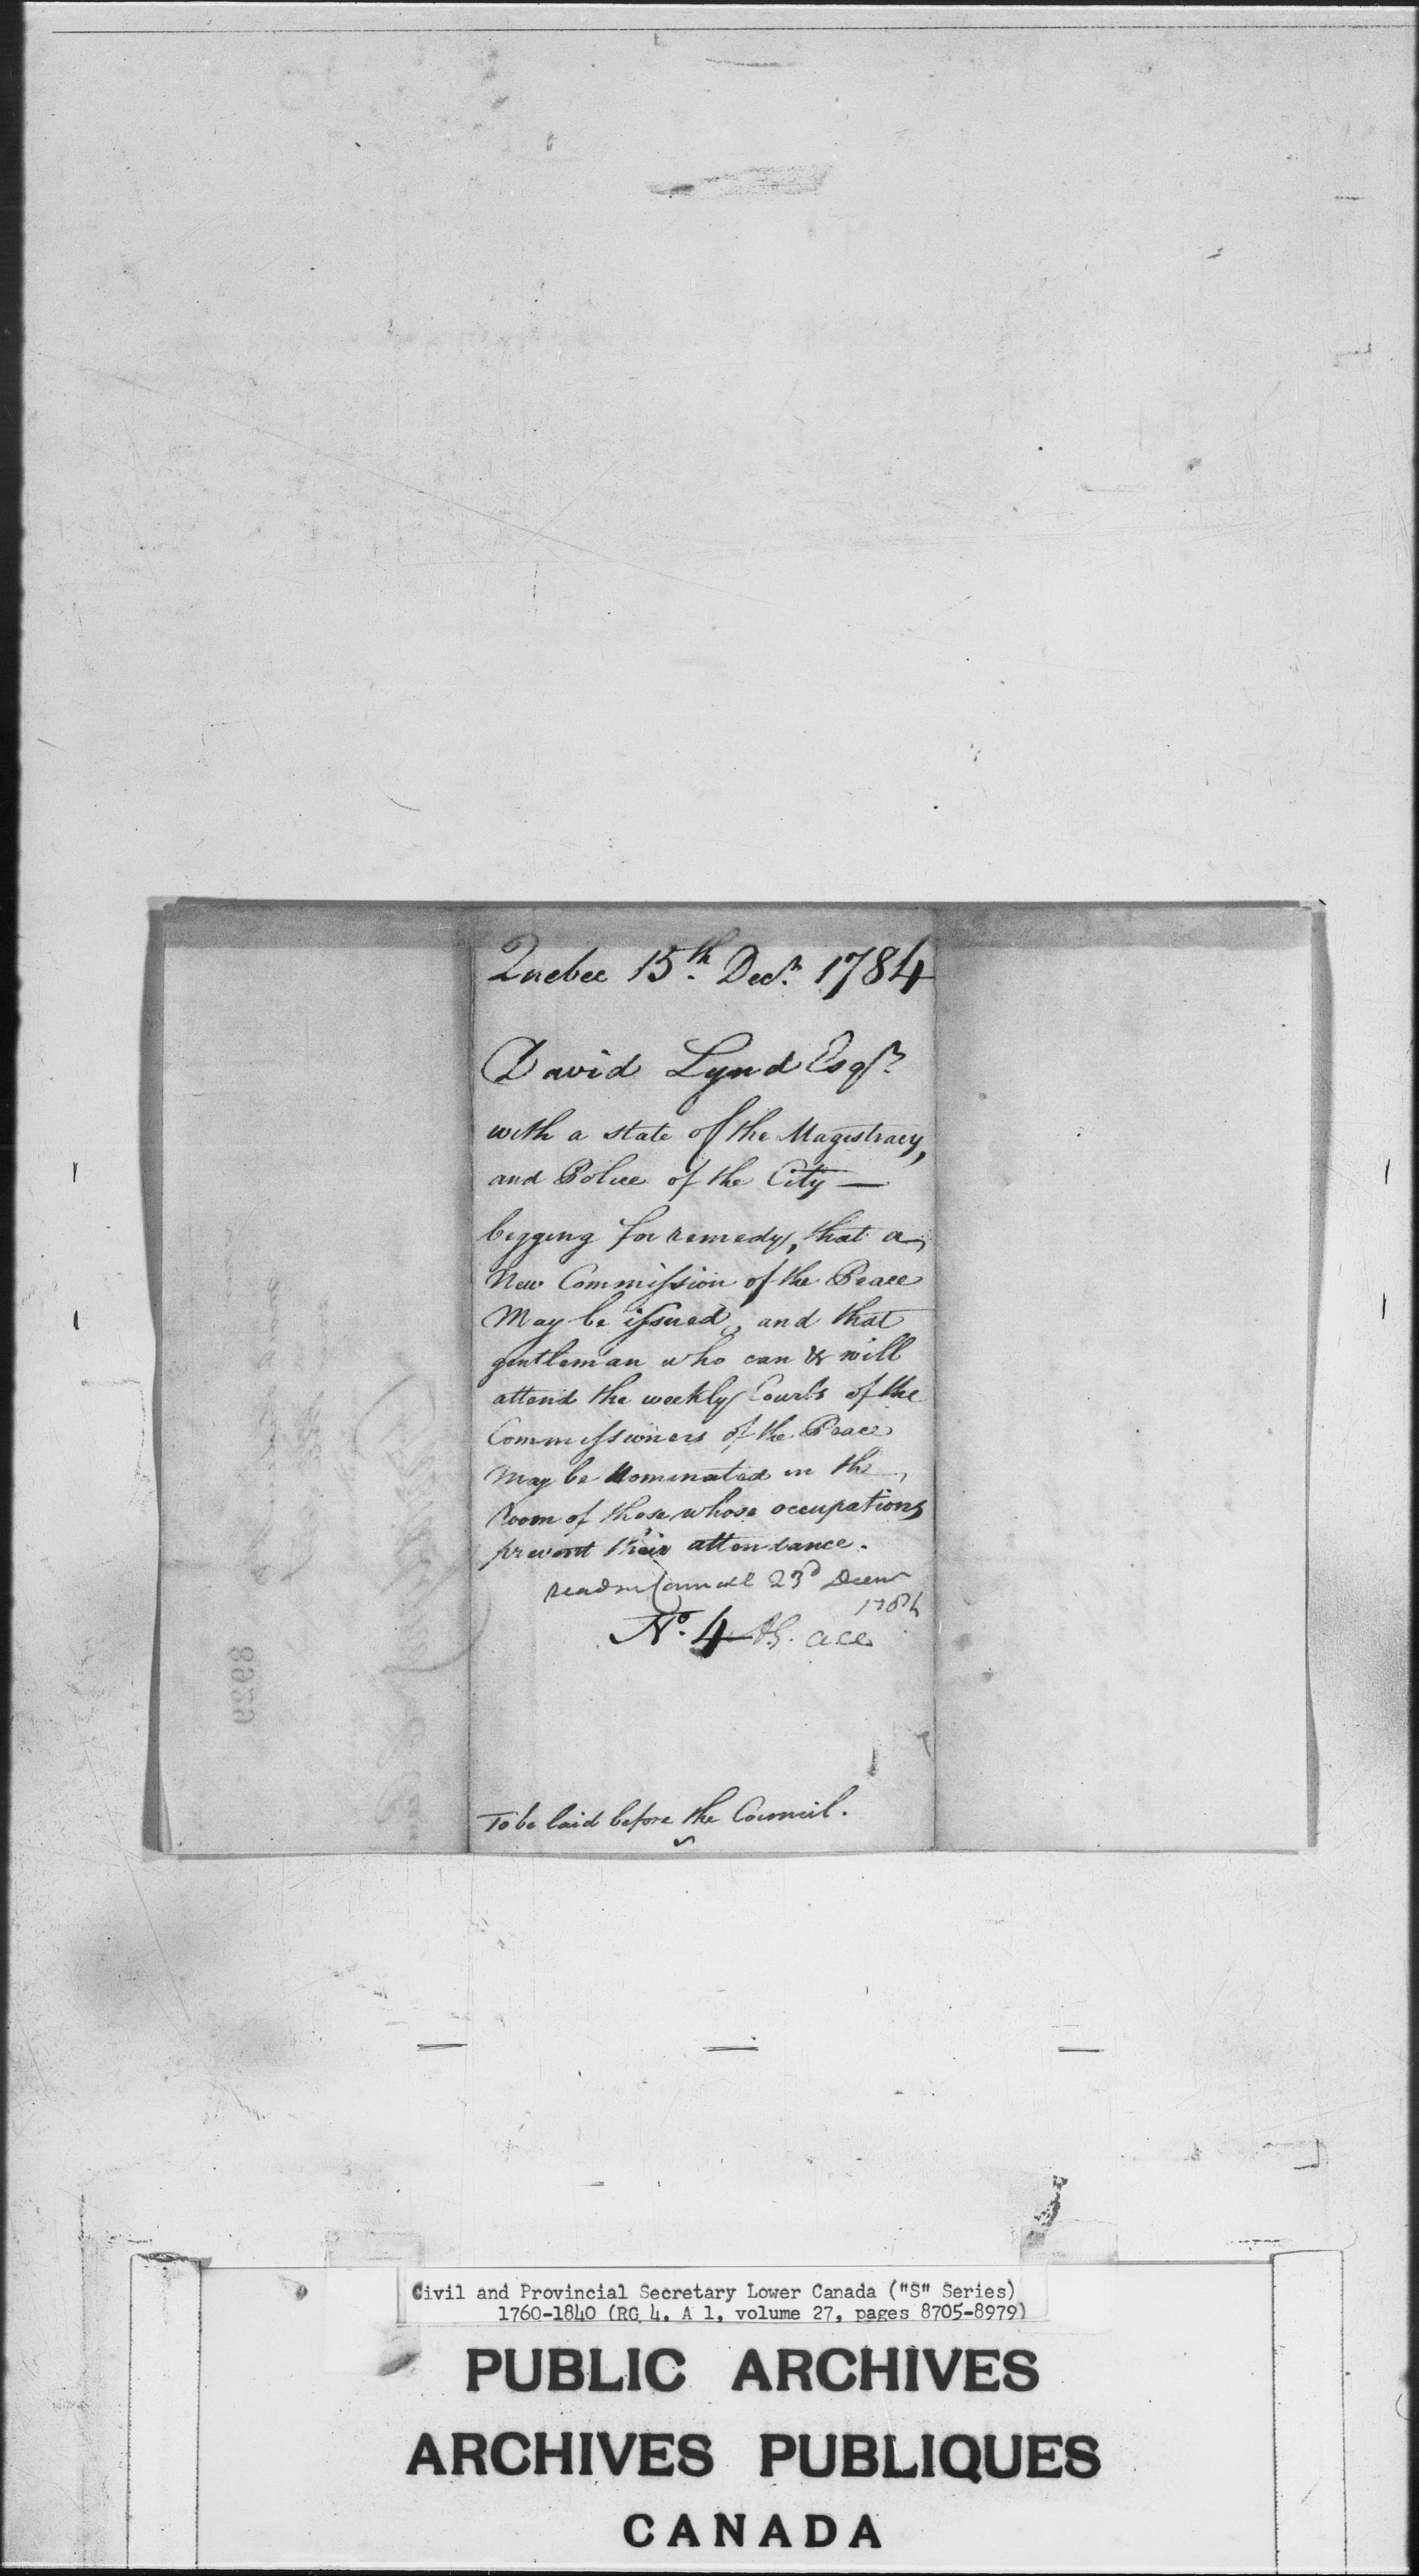 Quebec 15th. Decr. 1784
David Lynd Esqr.
with a state of the Magistracy,
and Police of the City —
begging for remedy, that a
New Commission of the Peace
May be issued, and that
gentleman who can & will
attend the weekly Courts of the
Commissioners of the Peace
May be Nominated in the
Room of those whose occupations
prevent their attendance.
read in Council 23d Decem
1784
No. 4
To be laid before the Council.
8939
Civil and Provincial Secretary Lower Canada ("S" Series)
1760-1840 (RG 4, A 1, volume 27, pages 8705-8979)
PUBLIC ARCHIVES
ARCHIVES PUBLIQUES
CANADA